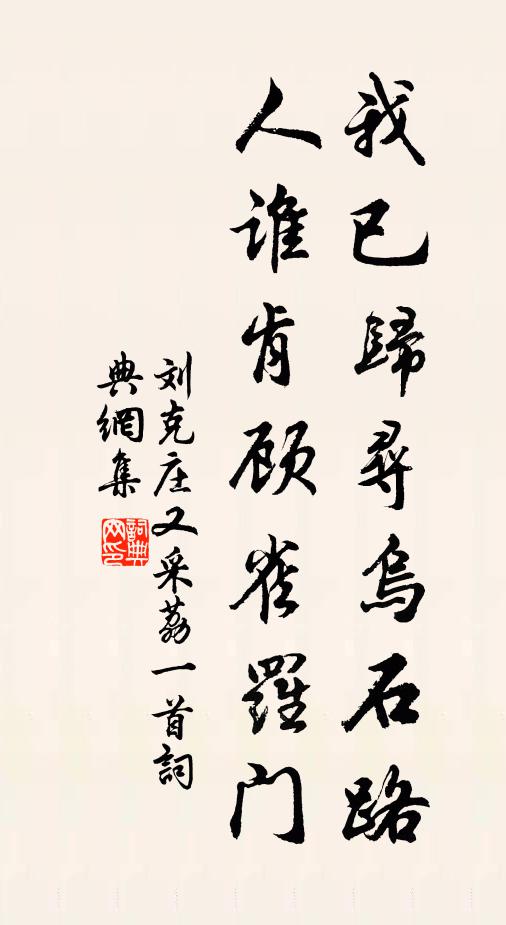 我已歸尋烏石路
人谁肯顾雀羅门
刘克庄又采荔一首詞
典網集
詞典网印